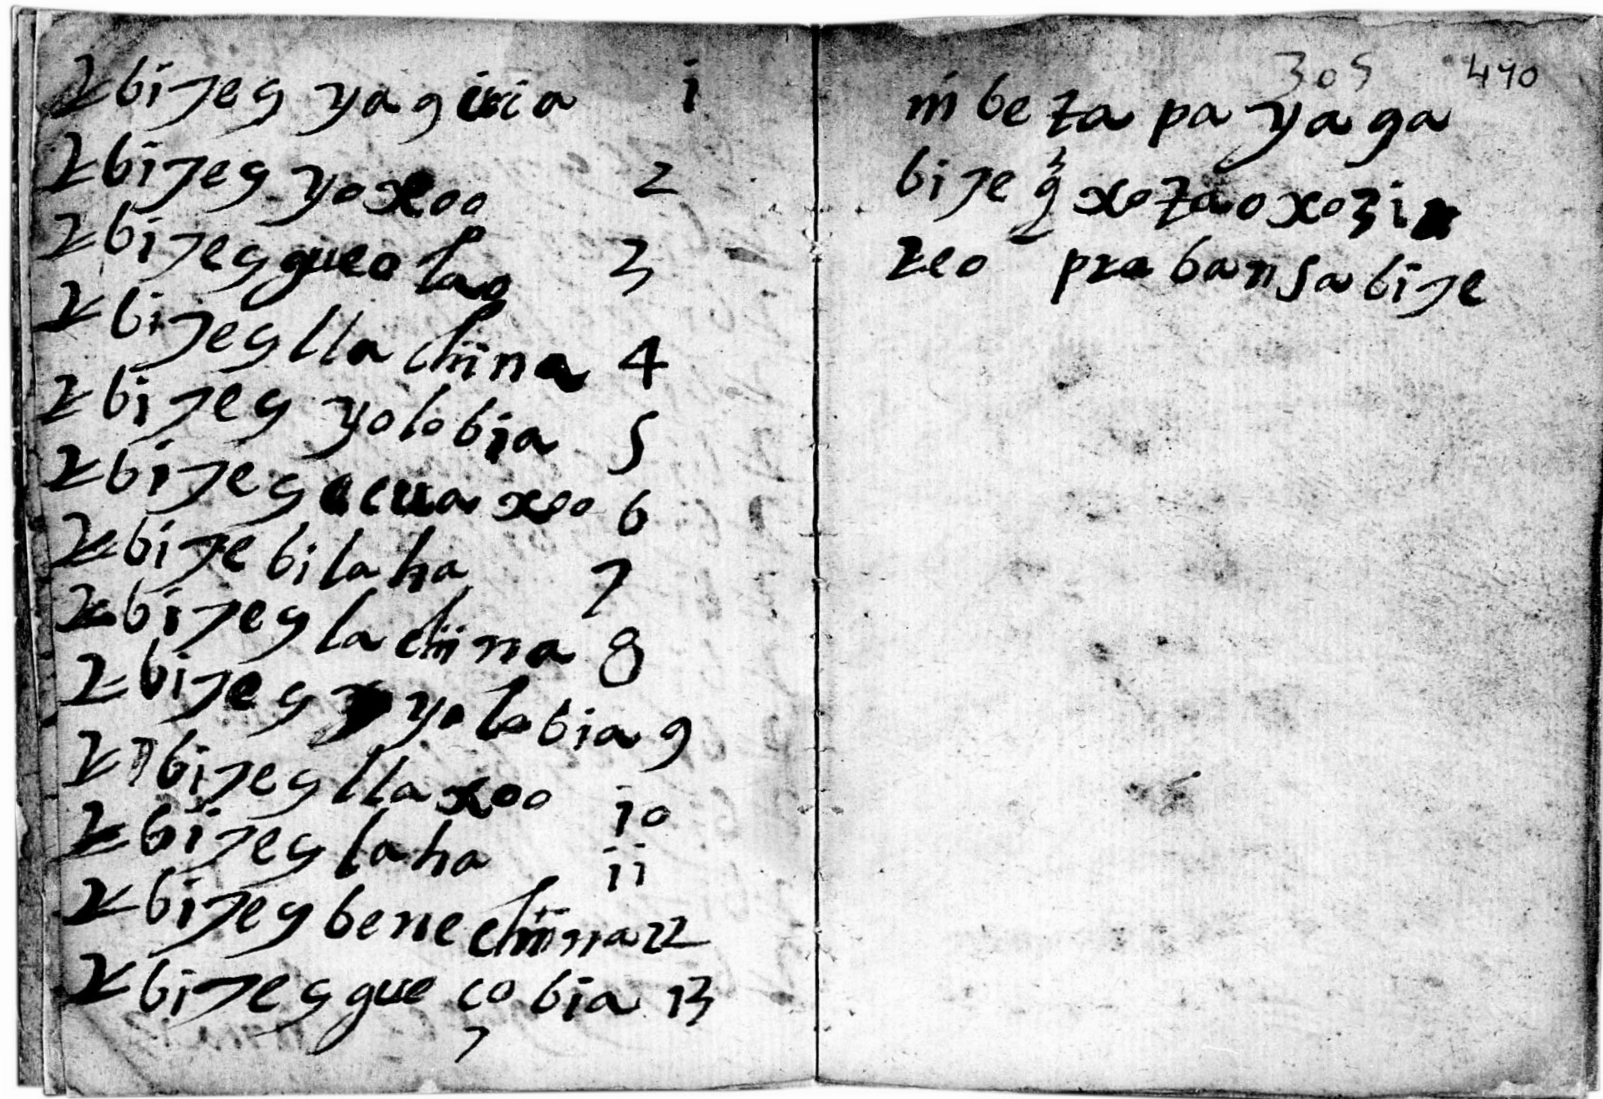 2 biȷeg yagicia i
2 biȷeg yoxoo 2
2 biȷeg gueo lao 3
2 biȷeg lla china 4
2 biȷeg yolo bia 5
2 biȷeg cua xoo 6
2 biȷe bi la ha 7
2 biȷeg la china 8
2 biȷeg yo lo bia 9
2 biȷeg lla xoo io
2 biȷeg la ha ii
2 biȷeg bene china 12
2 biȷeg gue ço bia 13
305 490
ni be za pa ya ga
bi ȷe xo za o xo zi
reo pra ban sa bi ȷe